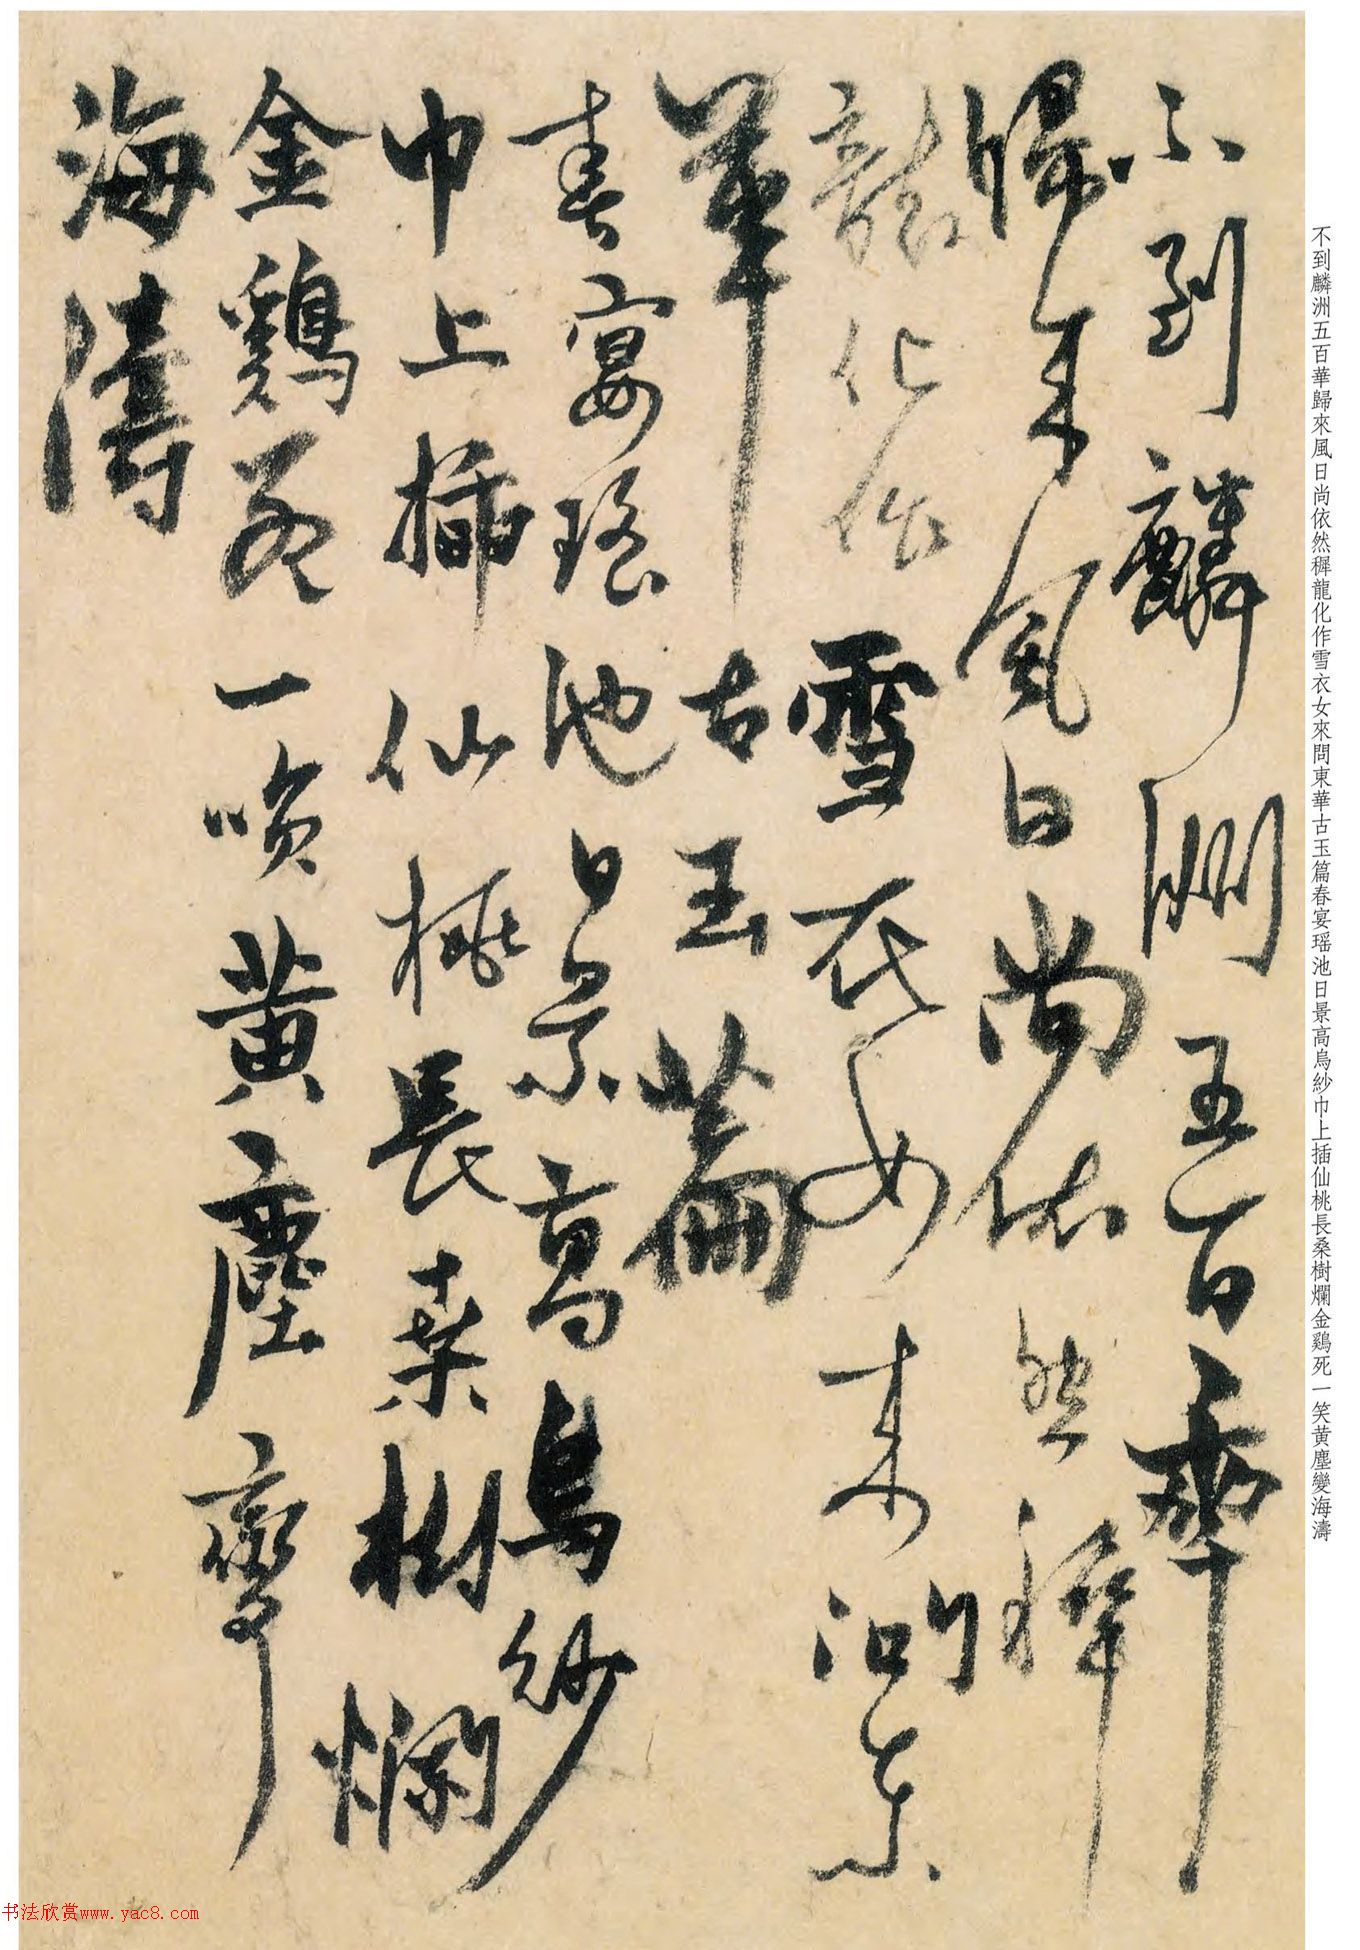 不到麟洲五百華
歸來風日尚依然穉
龍化作雪衣女來問東
華古玉篇
春宴瑶池日景高烏紗
巾上插仙桃長桑樹爛
金鷄死一笑黄塵變
海濤
不到麟洲五百華歸來風日尚依然穉龍化作雪衣女來問東華古玉篇春宴瑶池日景高烏紗巾上插仙桃長桑樹爛金鷄死一笑黄塵變海濤
书法欣赏www.yac8.com